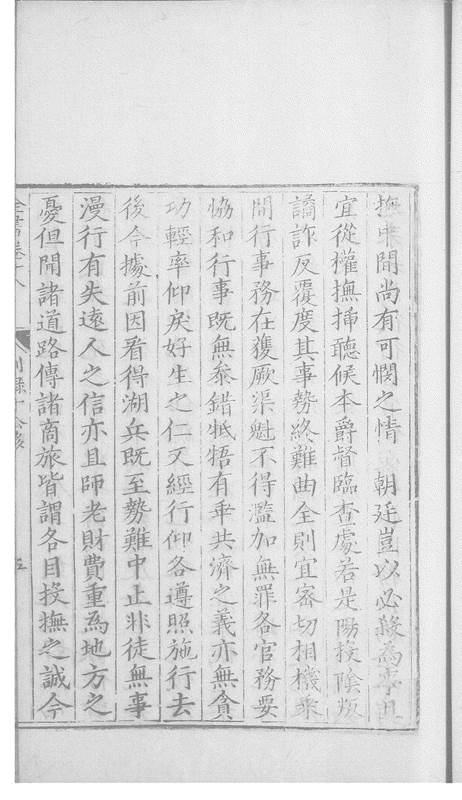 撫中間尚有可憫之情 朝廷豈以必殺為事且
宜從權撫揷聽候本爵督臨查處若是陽投陰叛
譎詐反覆度其事勢終難曲全則宜密切相機乘
間行事務在獲厥渠魁不得濫加無罪各官務要
恊和行事既無叅錯牴牾有乖共濟之義亦無貪
功輕率仰戾好生之仁又經行仰各遵照施行去
後今據前因看得湖兵既至勢難中止非徒無事
漫行有失遠人之信亦且師老財費重為地方之
憂但聞諸道路傳諸商旅皆謂各目投撫之誠今
全書卷十八 別錄十 公移 五